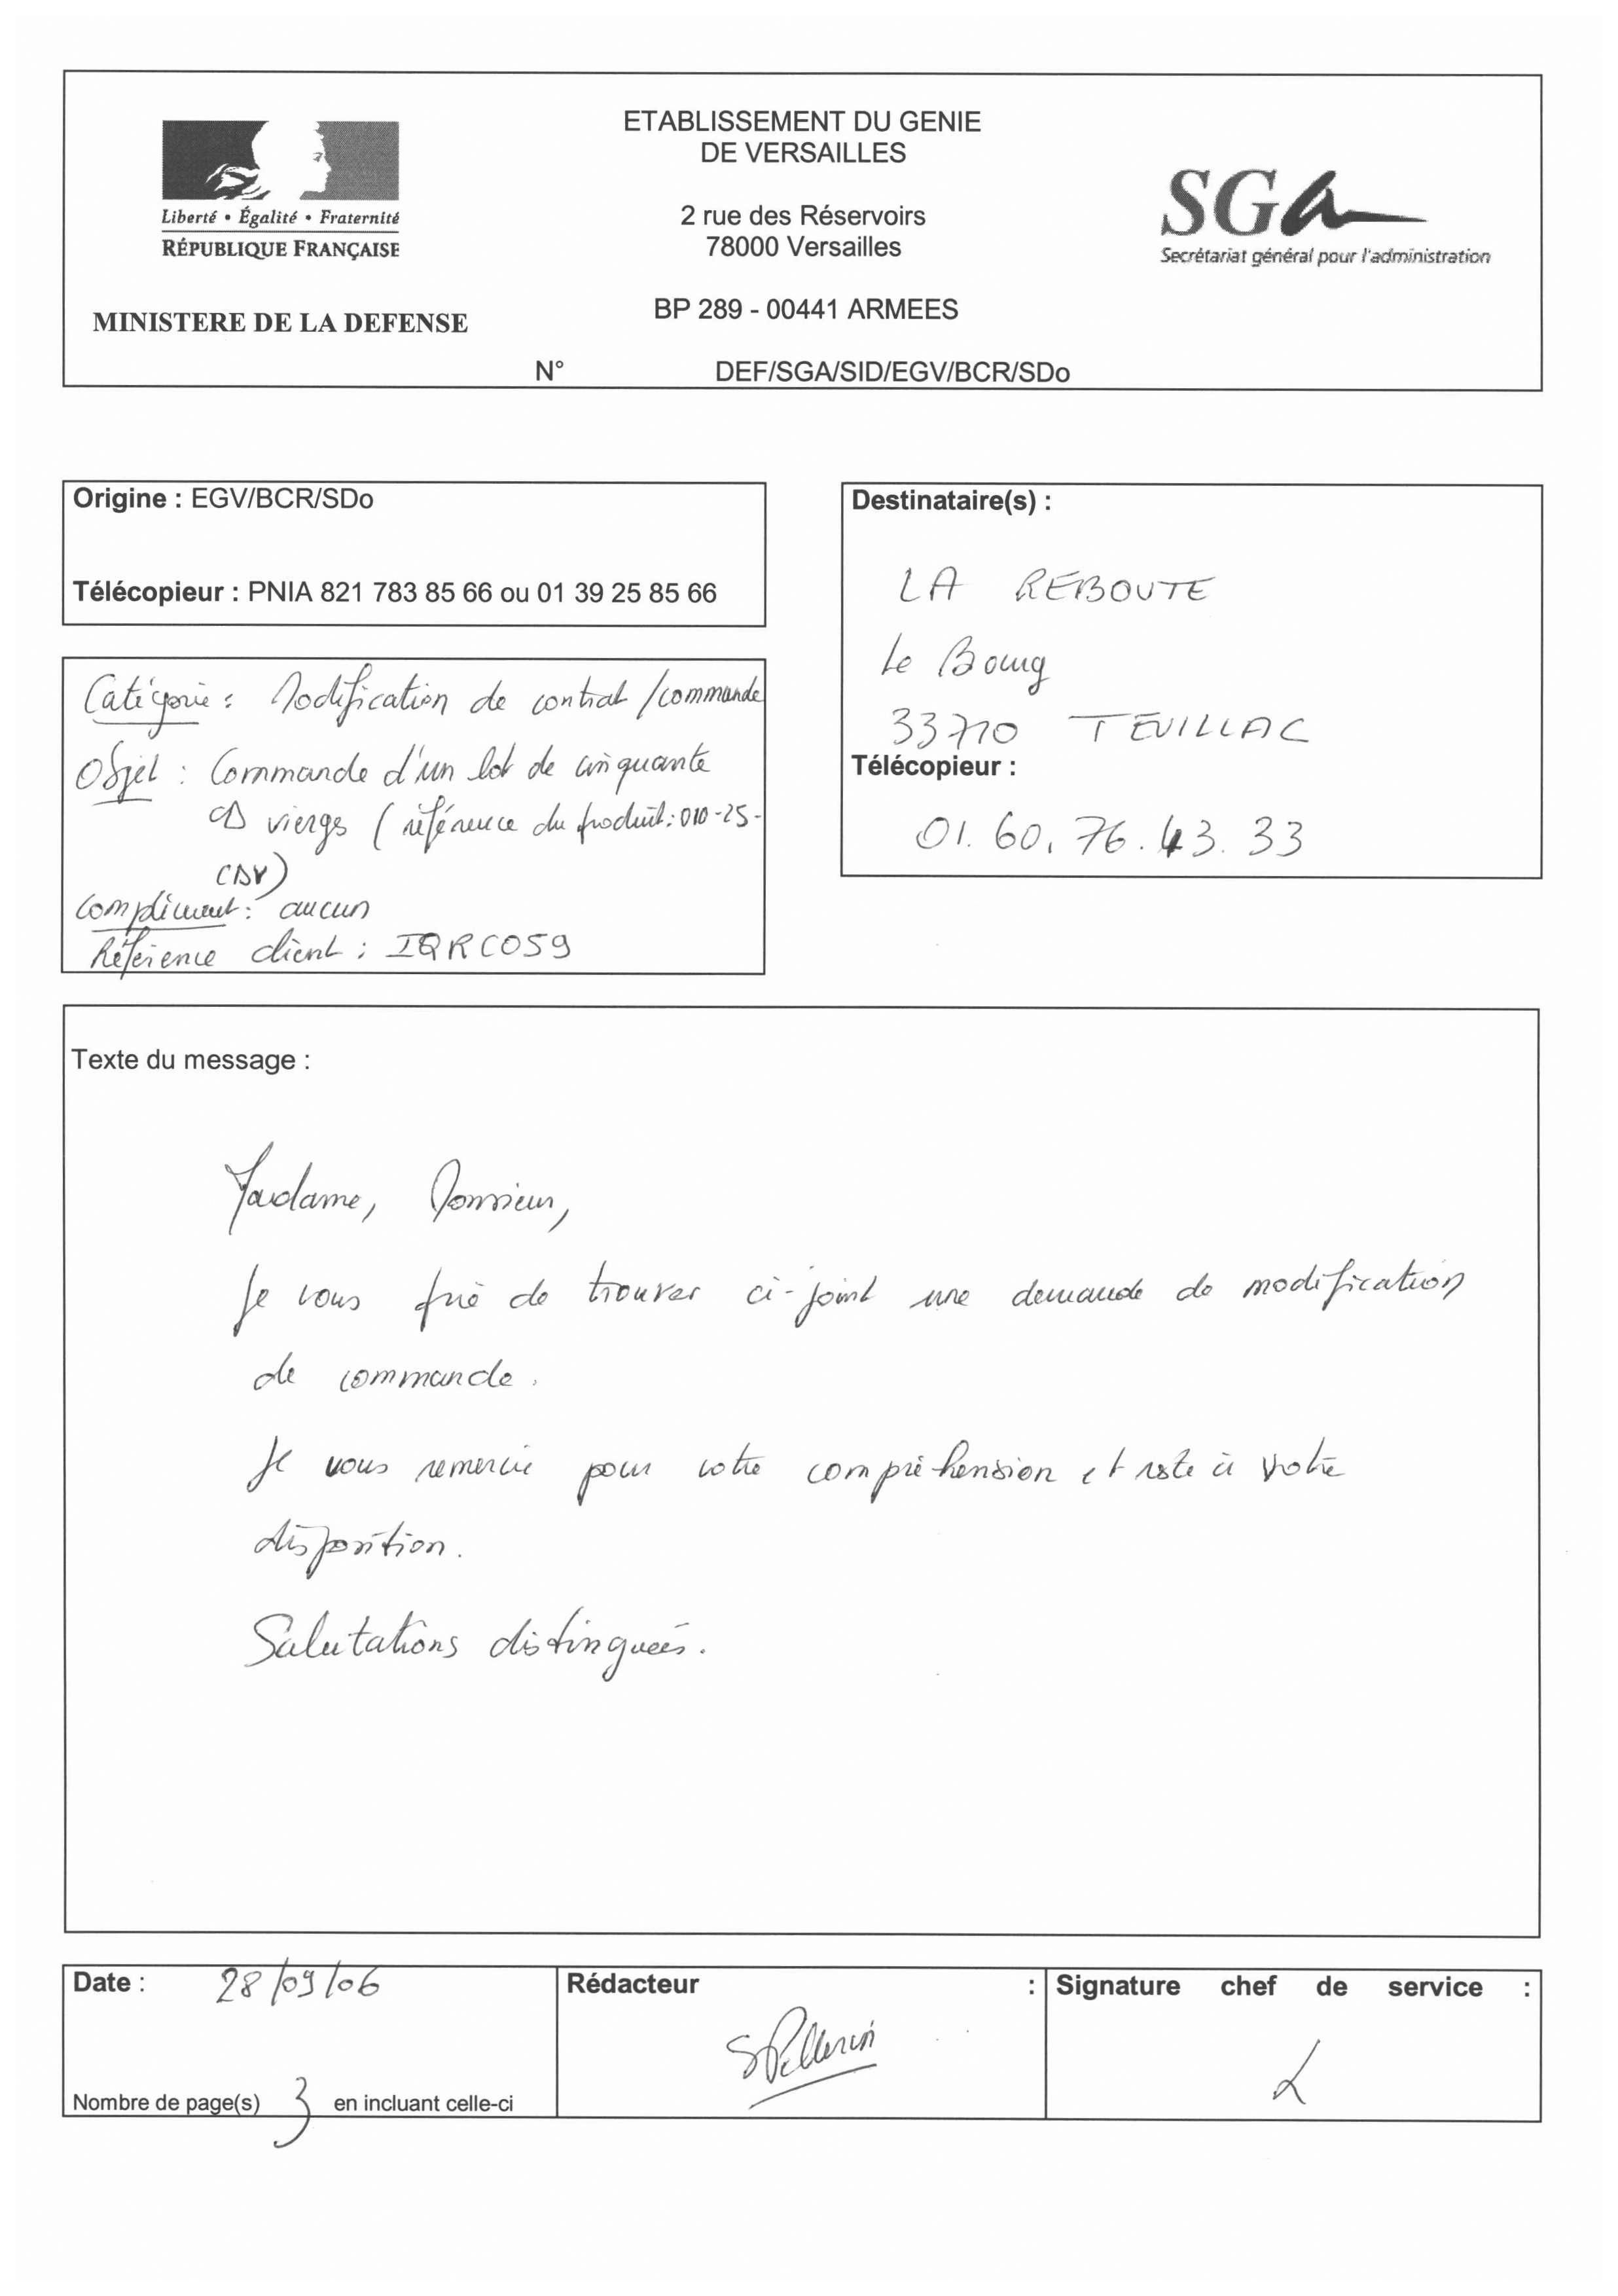 Liberté • Égalité • Fraternité
RÉPUBLIQUE FRANÇAISE
MINISTERE DE LA DEFENSE
ETABLISSEMENT DU GENIE
DE VERSAILLES
2 rue des Réservoirs
78000 Versailles
BP 289 - 00441 ARMEES
N° DEF/SGA/SID/EGV/BCR/SDo
SGa
Secrétariat général pour l'administration
Origine : EGV/BCR/SDo
Télécopieur : PNIA 821 783 85 66 ou 01 39 25 85 66
Catégorie : Modification de contrat /commande
Objet : Commande d'un lot de cinquante
CD vierges (référence du produit : 010-25-
CDV)
Complément : aucun
Référence client : IQRC059
Destinataire(s) :
LA REBOUTE
Le Bourg
33710 TEUILLAC
Télécopieur :
01.60.76.43.33
Texte du message :
Madame, Monsieur,
Je vous prie de trouver ci-joint une demande de modification
de commande.
Je vous remercie pour votre compréhension et reste à votre
disposition.
Salutations distinguées.
Date : 28/09/06
Nombre de page(s) 3 en incluant celle-ci
Rédacteur :
SPellerin
Signature chef de service :